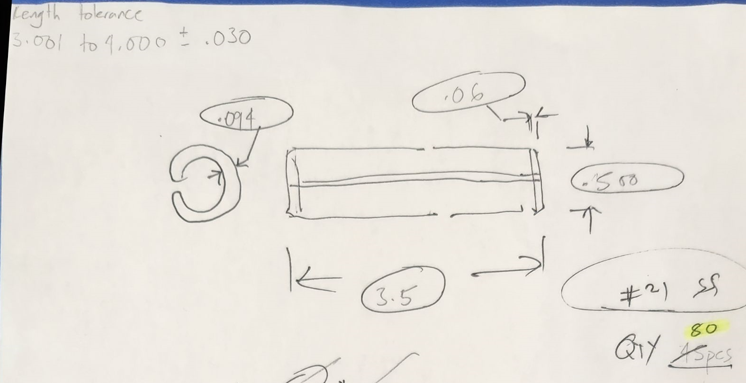 Length tolerance
3.001 to 4.000 ± .030
.094
.06
.500
3.5
#21 SS
80
QTY 45pcs